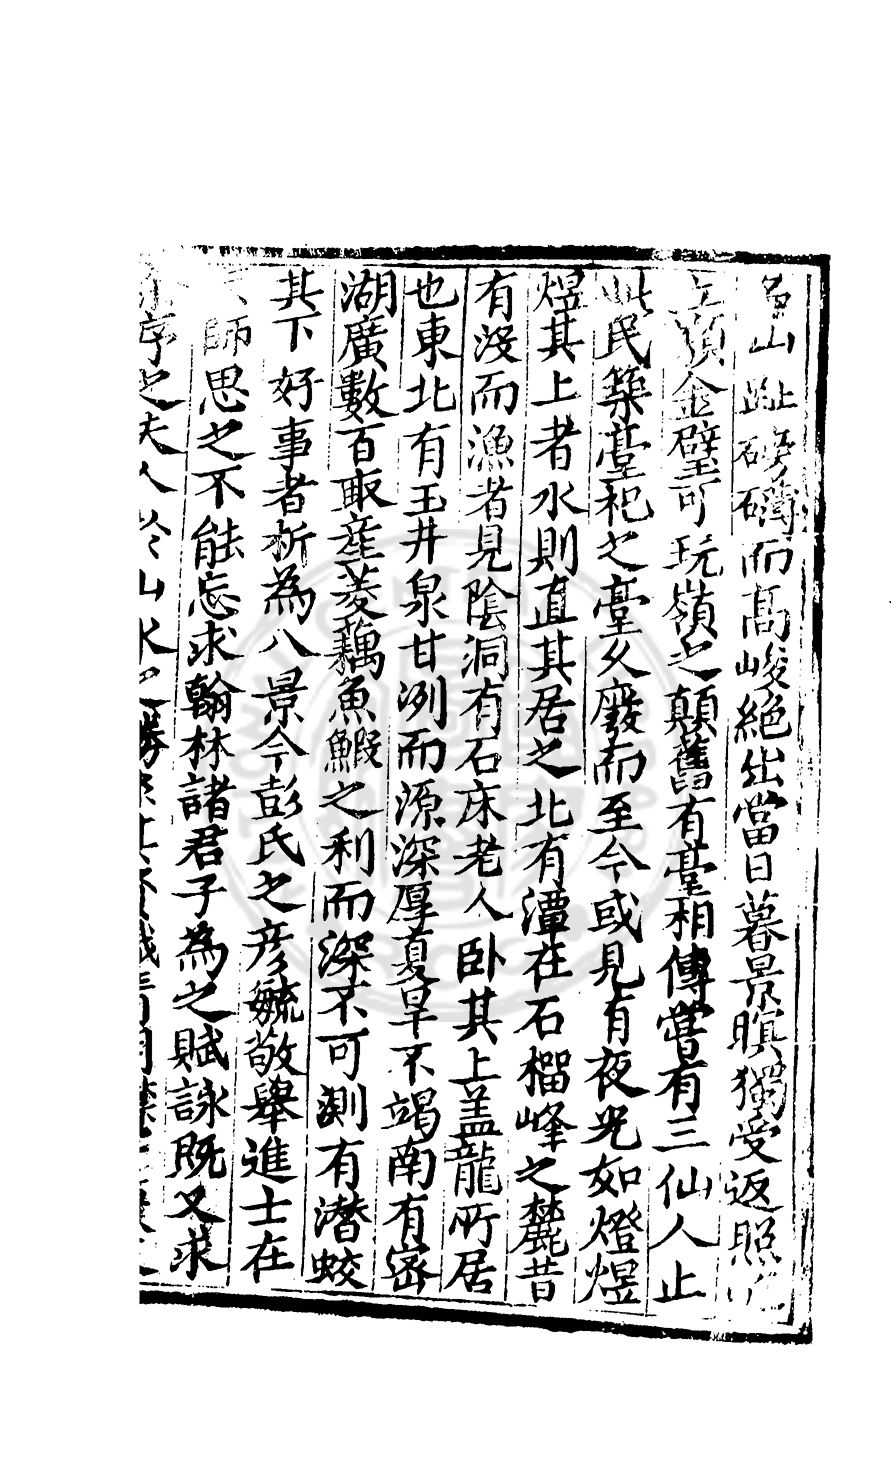 山趾磅礴而高峻絕出當日暮景暝獨受返照
巔金璧可玩嶺之顛舊有臺相傳嘗有三仙人止
此民築臺祀之臺久廢而至今或見有夜光如燈煜
煜其上者水則直其居之北有潭在石榴峰之麓昔
有沒而漁者見陰洞有石床老人卧其上盖龍所居
也東北有玉井泉甘冽而源深厚夏旱不竭南有密
湖廣數百畝産菱藕魚鰕之利而深不可測有潛蛟
其下好事者析為八景今彭氏之彦毓敬舉進士在
師思之不能忘求翰林諸君子為之賦詠既又求
序之夫人於山水之勝